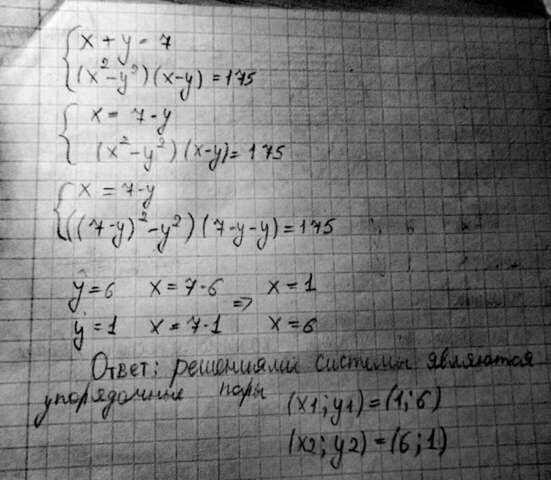 x + y = 7
(x² - y²)(x - y) = 175
x = 7 - y
(x² - y²)(x - y) = 175
x = 7 - y
((7 - y)² - y²)(7 - y - y) = 175
y = 6 x = 7 - 6 => x = 1
y = 1 x = 7 - 1 x = 6
Ответ: решениями системы являются
упорядочные пары (x1; y1) = (1; 6)
(x2; y2) = (6; 1)